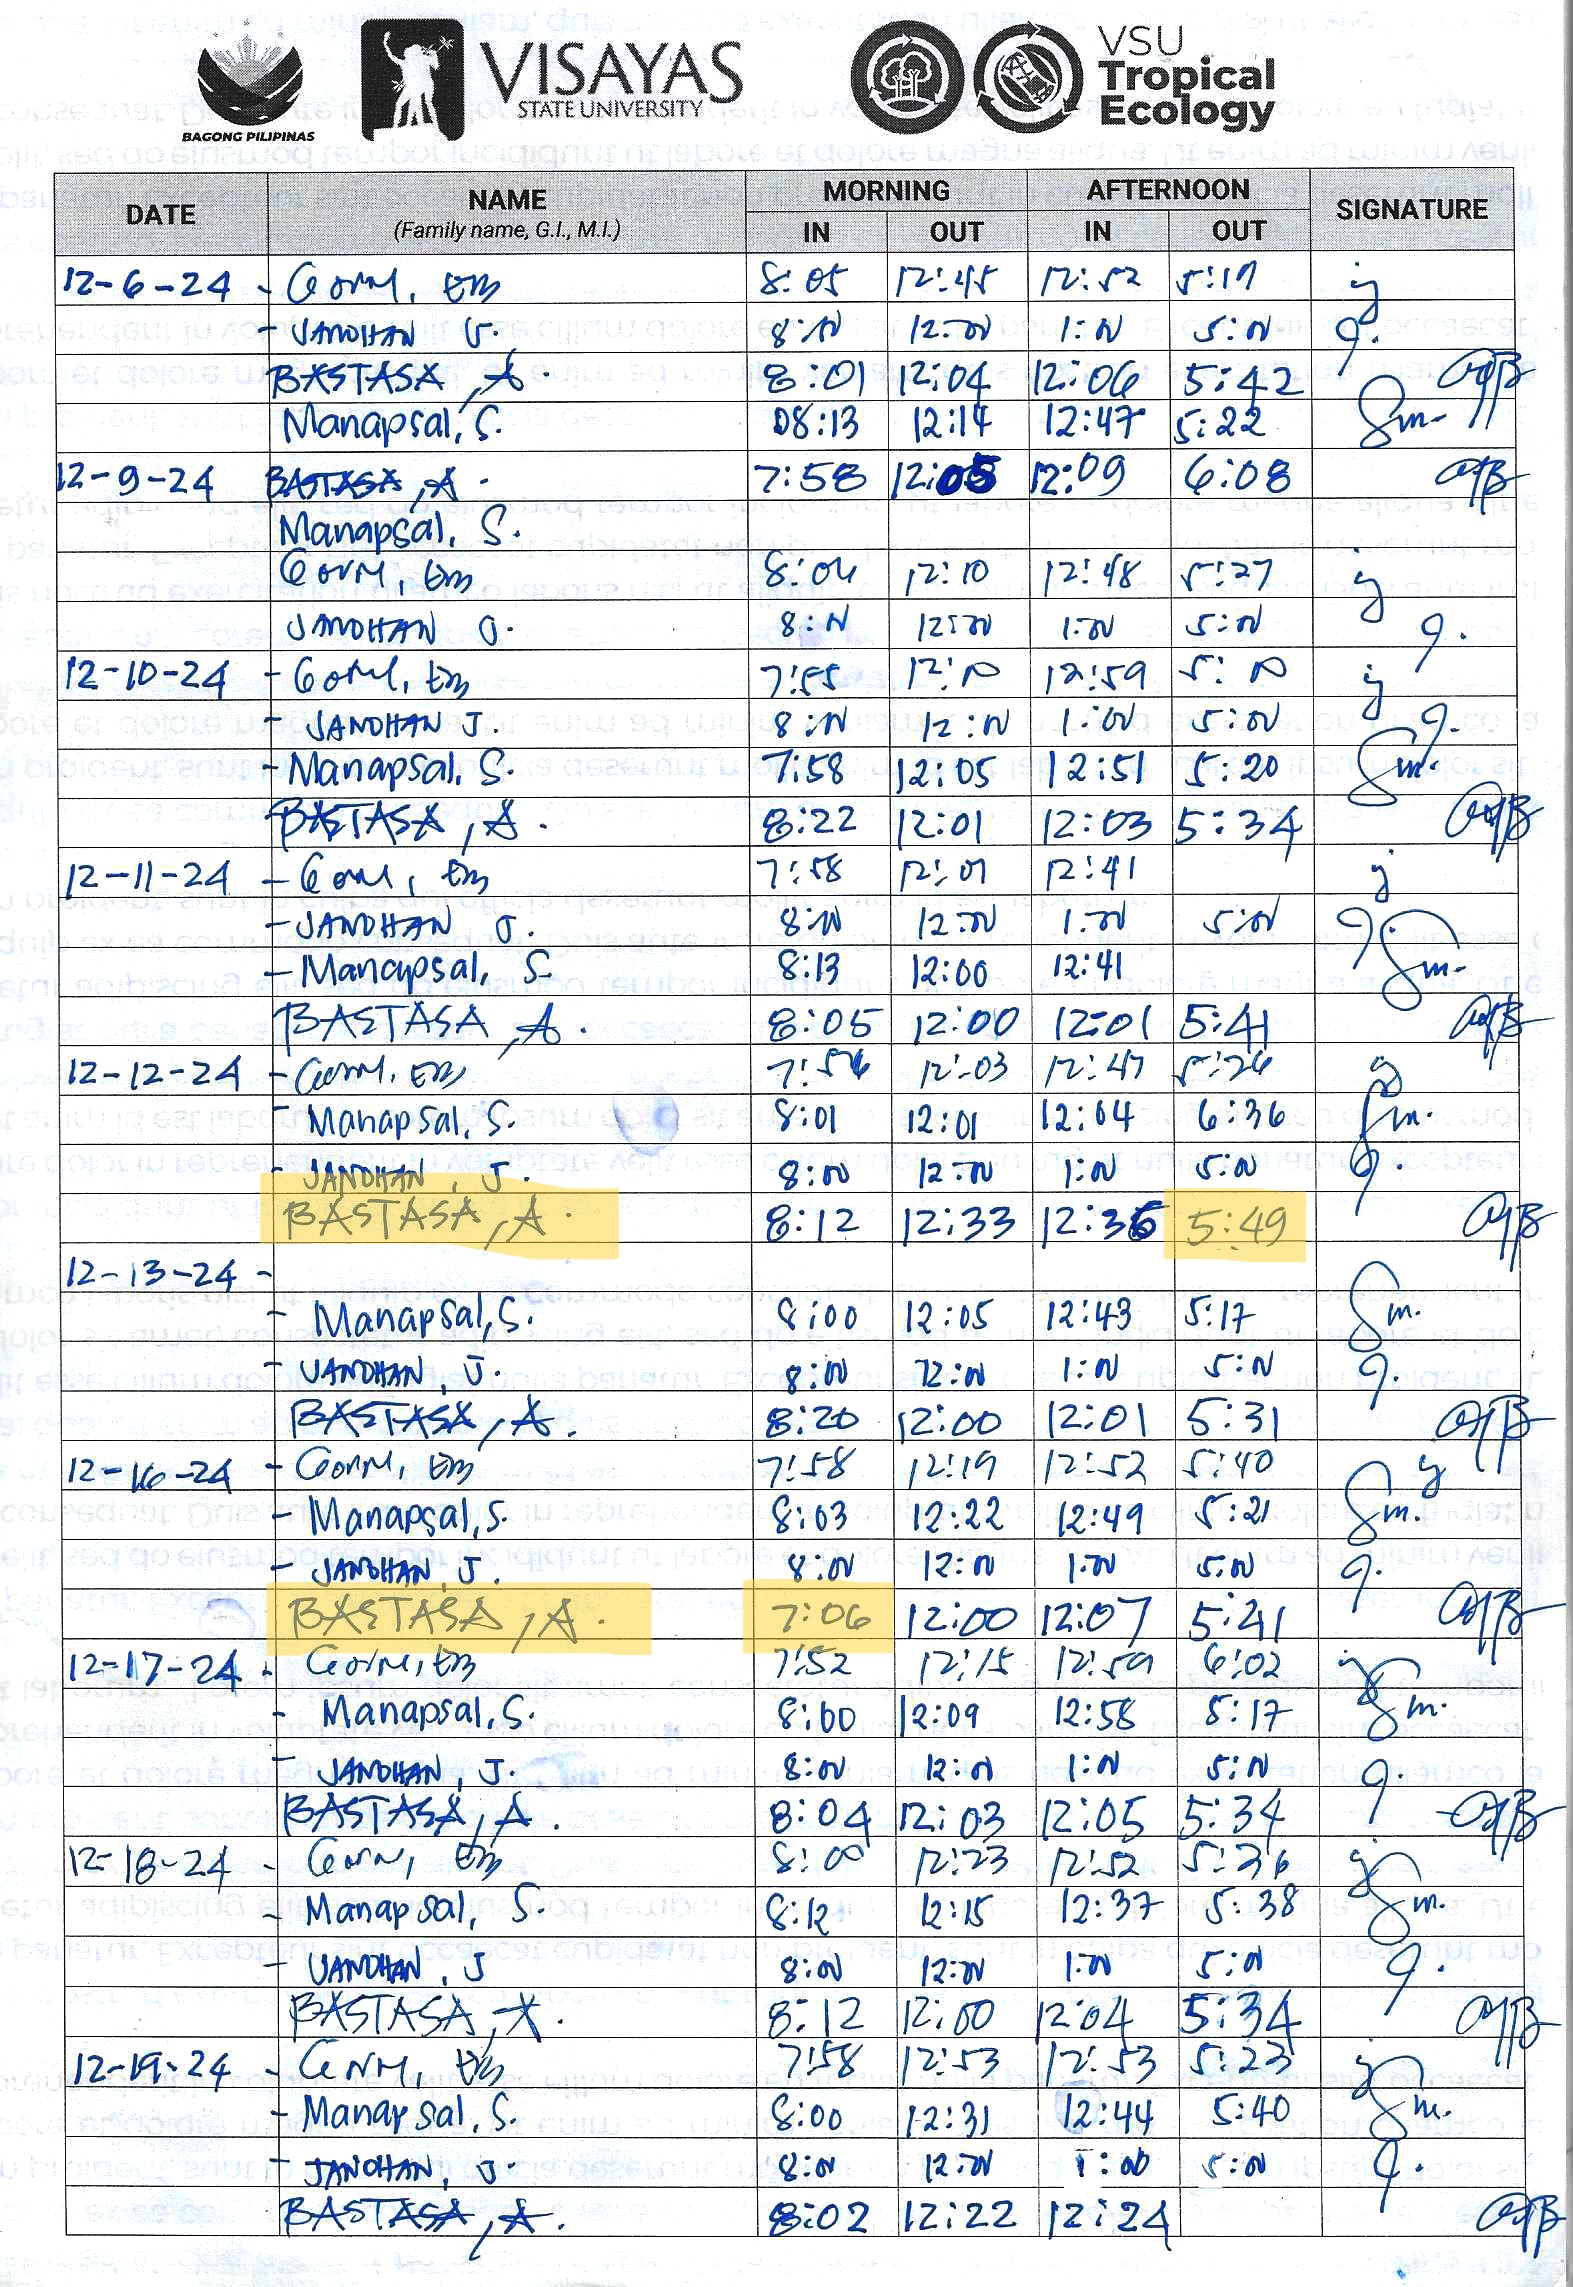 BAGONG PILIPINAS
VISAYAS
STATE UNIVERSITY
VSU
Tropical
Ecology
DATE NAME (Family name, G.I., M.I.) MORNING IN OUT AFTERNOON IN OUT SIGNATURE
12-6-24 - 8:05 12:45 12:52 5:19
- JANDHAN J. 8:00 12:00 1:00 5:00
BASTASA, A 8:01 12:04 12:06 5:42
Manapsal, S. 08:13 12:14 12:47 5:22
12-9-24 BASTASA, A. 7:58 12:05 12:09 6:08
Manapsal, S.
12:10 12:48 5:27
JANDHAN J. 8:00 12:00 1:00 5:00
12-10-24 - 7:55 12:00 12:59 5:00
- JANDHAN J. 8:00 12:00 1:00 5:00
- Manapsal, S. 7:58 12:05 12:51 5:20
BASTASA, A. 8:22 12:01 12:03 5:34
12-11-24 - 7:58 12:01 12:41
- JANDHAN J. 8:00 12:00 1:00 5:00
- Manapsal, S. 8:13 12:00 12:41
BASTASA, A. 8:05 12:00 12:01 5:41
12-12-24 - 12:03 12:47 5:26
- Manapsal, S. 8:01 12:01 12:04 6:36
- JANDHAN, J. 8:00 12:00 1:00 5:00
BASTASA, A. 8:12 12:33 12:36 5:49
12-13-24 -
- Manapsal, S. 8:00 12:05 12:43 5:17
- JANDHAN, J. 8:00 12:00 1:00 5:00
BASTASA, A. 8:20 12:00 12:01 5:31
12-16-24 - 7:58 12:19 12:52 5:40
- Manapsal, S. 8:03 12:22 12:49 5:21
- JANDHAN, J. 8:00 12:00 1:00 5:00
BASTASA, A. 7:06 12:00 12:07 5:41
12-17-24 - 7:52 12:15 12:59 6:02
- Manapsal, S. 8:00 12:09 12:58 5:17
- JANDHAN, J. 8:00 12:00 1:00 5:00
BASTASA, A. 8:04 12:03 12:05 5:34
12-18-24 - 8:00 12:23 12:52 5:36
- Manapsal, S. 8:12 12:15 12:37 5:38
- JANDHAN, J 8:00 12:00 1:00 5:00
BASTASA, A. 8:12 12:00 12:04 5:34
12-19-24 - 7:58 12:53 12:53 5:23
- Manapsal, S. 8:00 12:31 12:44 5:40
- JANDHAN, J. 8:00 12:00 1:00 5:00
BASTASA, A. 8:02 12:22 12:24